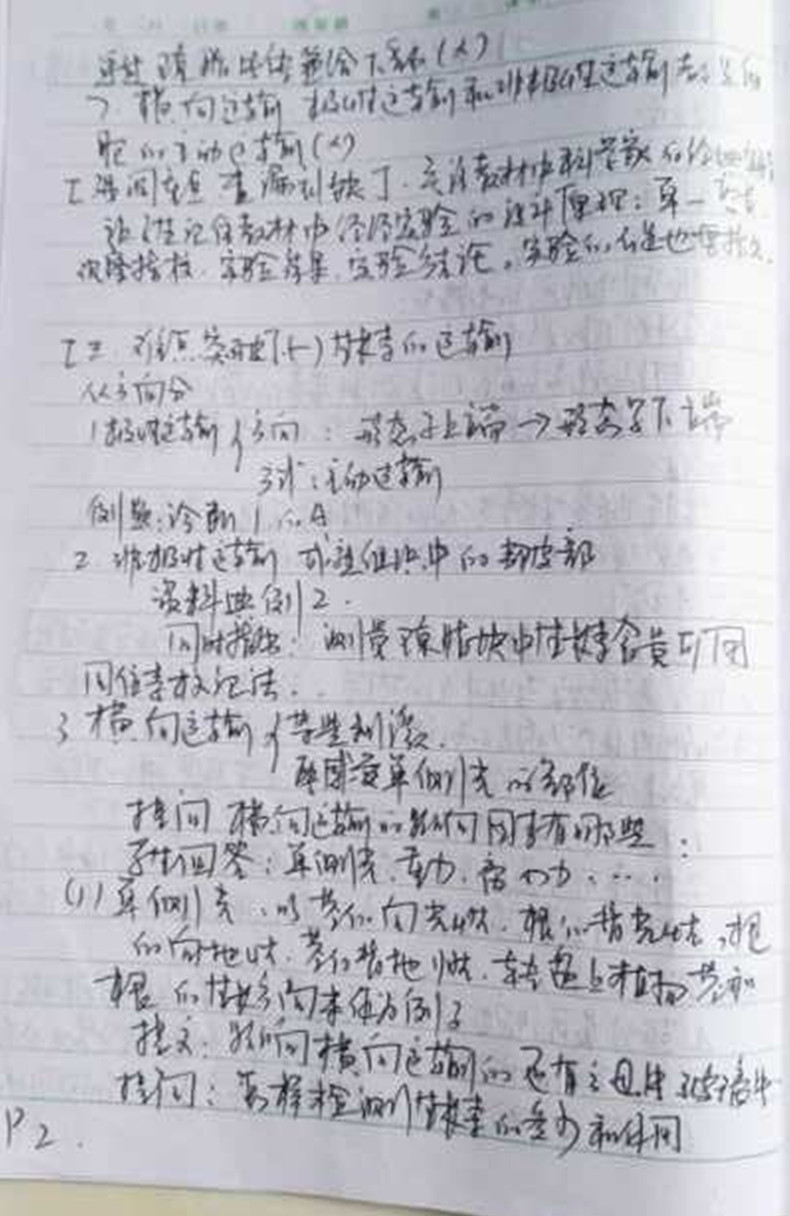 通过琼脂块传递给下部(×)
7. 横向运输 极性运输和非极性运输都是细
胞的主动运输(×)
【巩固重点 查漏补缺】. 关注教材中科学家的经典实验
设计记住教材中经过实验的设计原理: 单一变量
观察指标. 实验结果. 实验结论。实验的
【三. 难点突破】(一)生长素的运输
从方向分
1极性运输{方向: 形态学上端→形态学下端
方式:主动运输
例题:诊断1.的A
2 非极性运输 成熟组织中的韧皮部
资料典例2.
同时指出: 测量琼脂块中生长素含量可用
同位素标记法..
3 横向运输{单侧刺激
在感受单侧光的部位
提问 横向运输的影响因素有哪些:
学生回答: 单侧光.重力.离心力.....
(1)单侧光.以茎的向光性.根的背光性,根
的向地性.茎的背地性.转盘上植物茎和
根的生长方向来作为例子
提问: 影响横向运输的还有云母片 琼脂片
提问: 怎样检测生长素的多少和作用
P2.